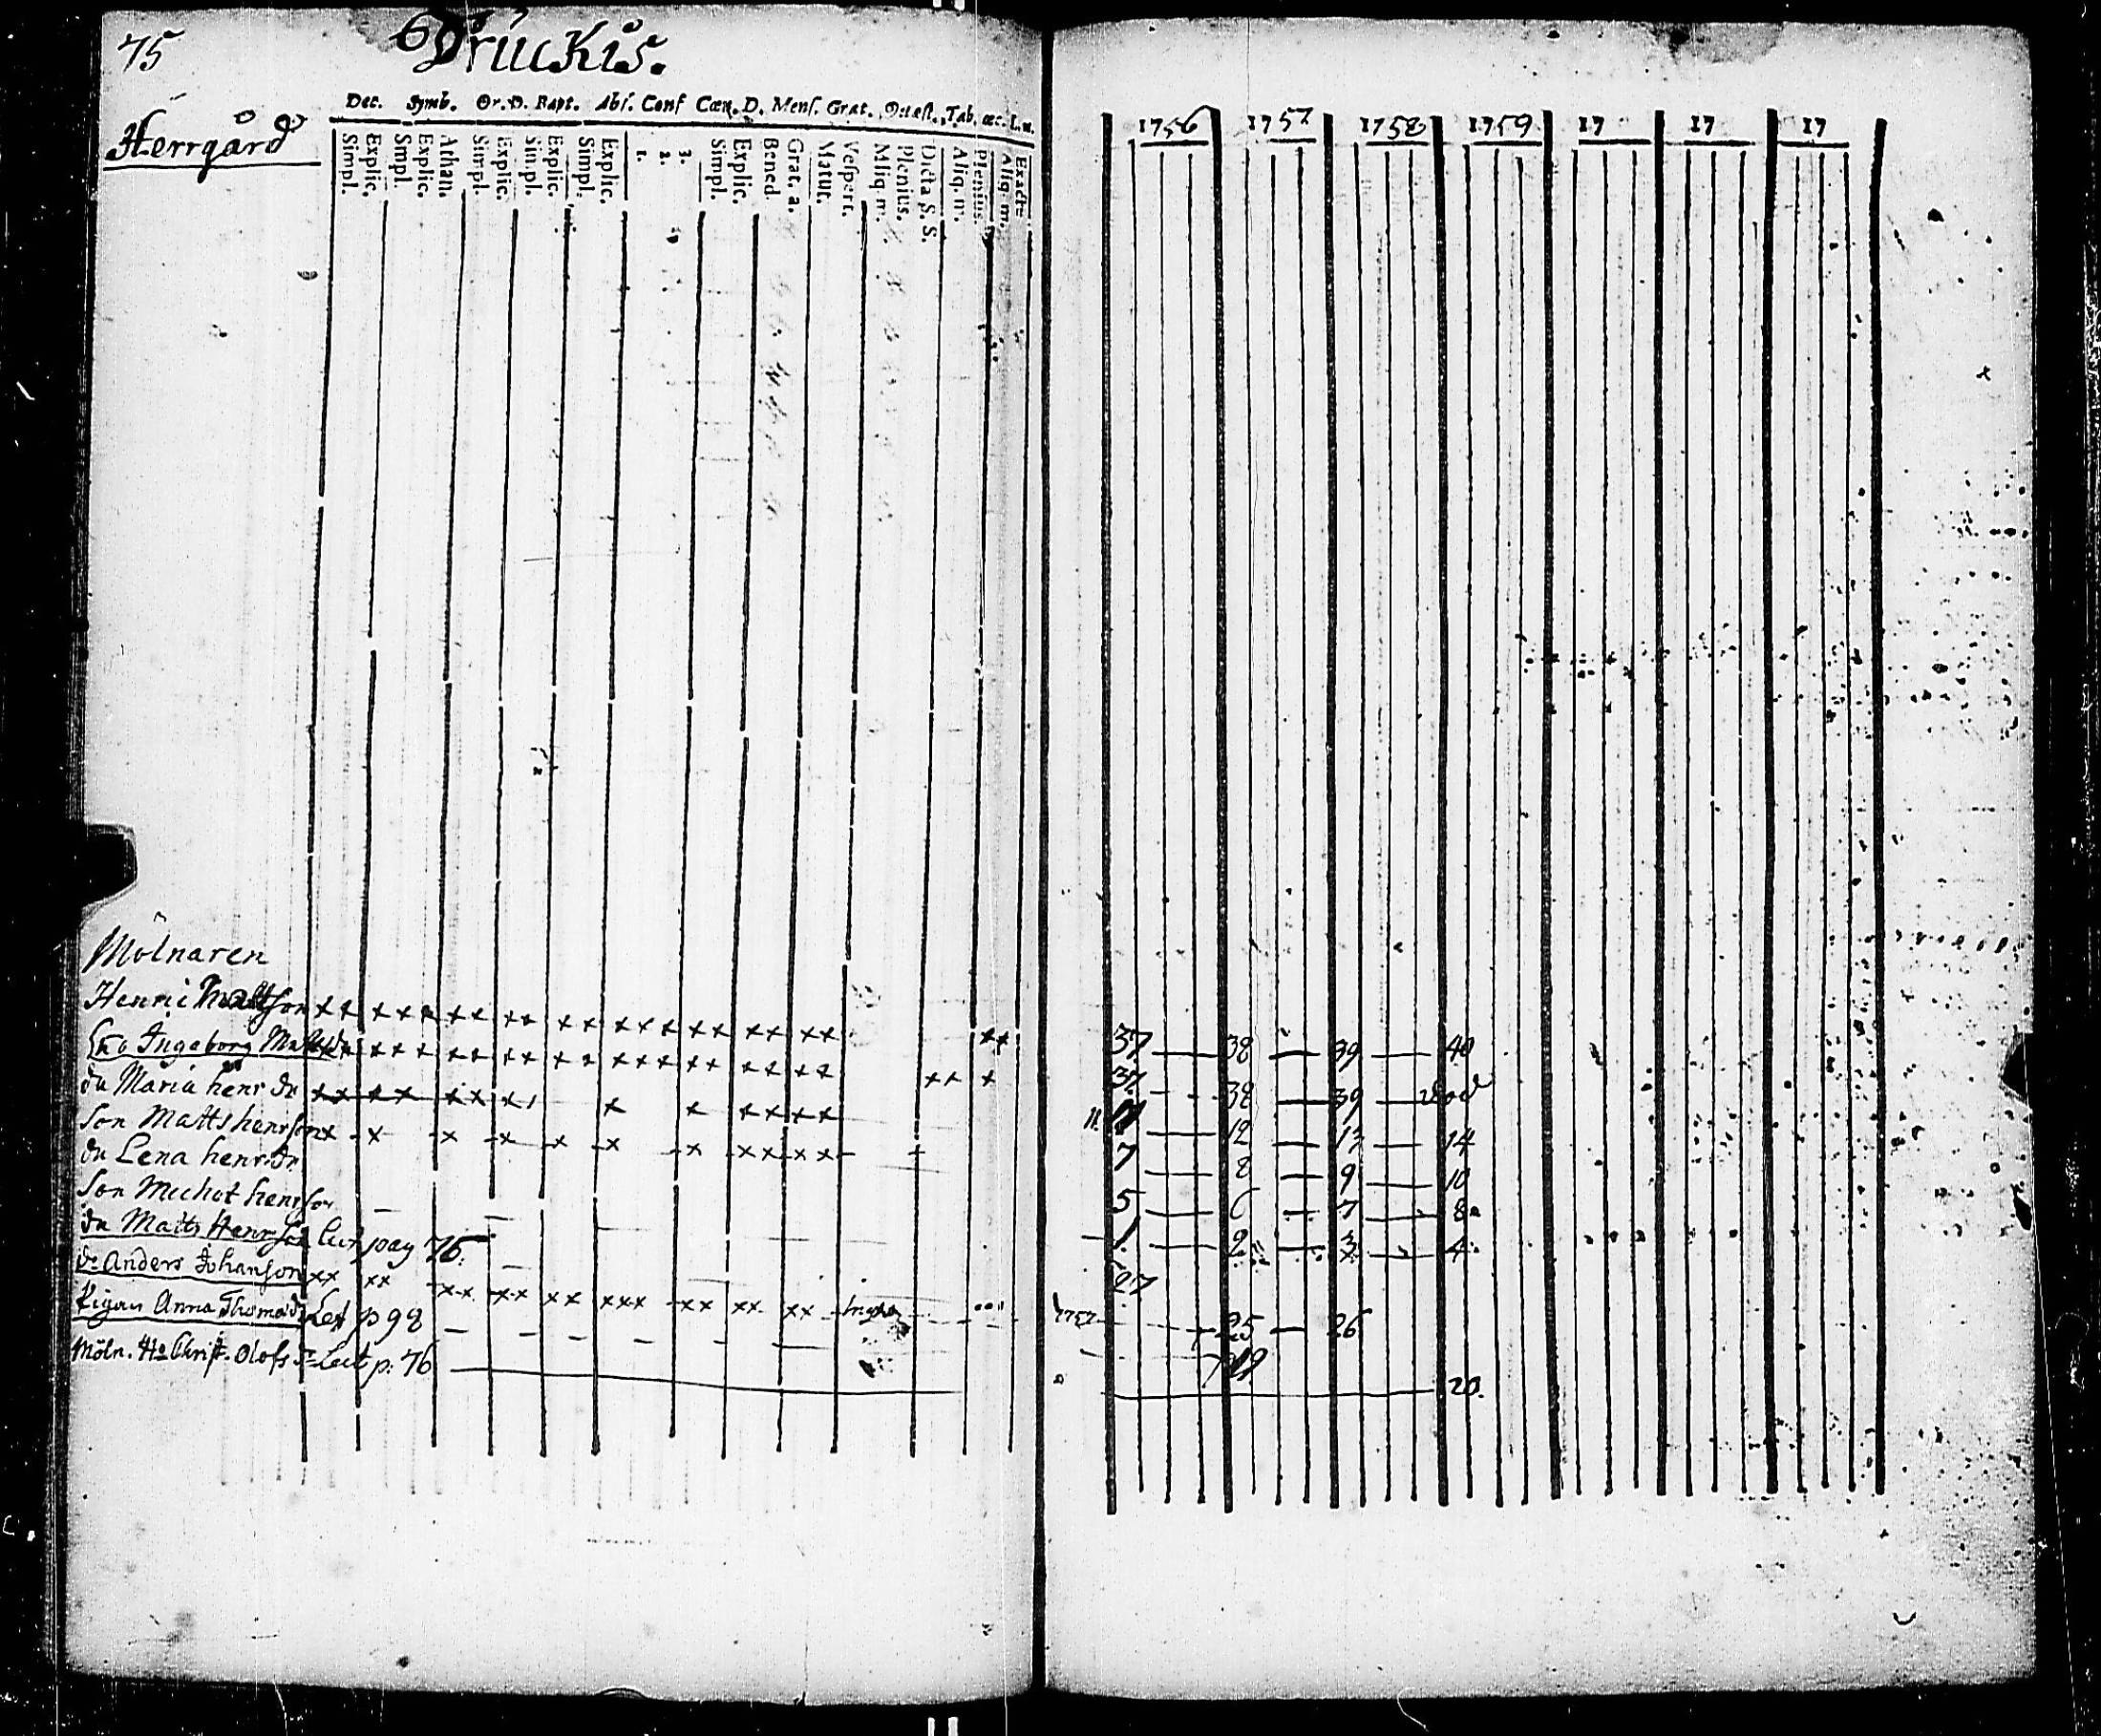 75
Drückis.
Herrgård
Dec. Symb. Or. D. Bapt. Abs. Conf Cœn. D. Mens. Grat. Quæst. Tab. œc. L.
Simpl. Explic. Simpl. Explic. Athan. Simpl. Explic. Simpl. Explic. Simpl. Explic. 1. 2. 3. Simpl. Explic. Bened. Grat. a. Matut. Vespert. Aliq. m. Plenius. Dicta S. S. Aliq. m. Plenius. Aliq. m. Exacte
1756 1757 1758 1759 17 17 17
Mölnaren
Henric Mattson xx xxx xx xx xx xxx xx xx xx xx 37 38 39 40
Ingeborg xxx xx xx xx xxx xx xx xx xx x 37 38 39 död
du Maria henr dr xx xx xx x x x xx xx 11. 11 12 13 14
son Matts henrson x x x x x x x xx xx 7 8 9 10
du Lena henr dr 5 6 7 8
son Michel henrson 1 2 3 4
dr Matts Henrson pag 76. 27
dr Anders Johanson xx xx xx xx xx xxx xx xx xx 1757 25 26
Pigan Anna Thomæ dr p 98 19
Möln. Hu Christ. Olofs dr p. 76 20.